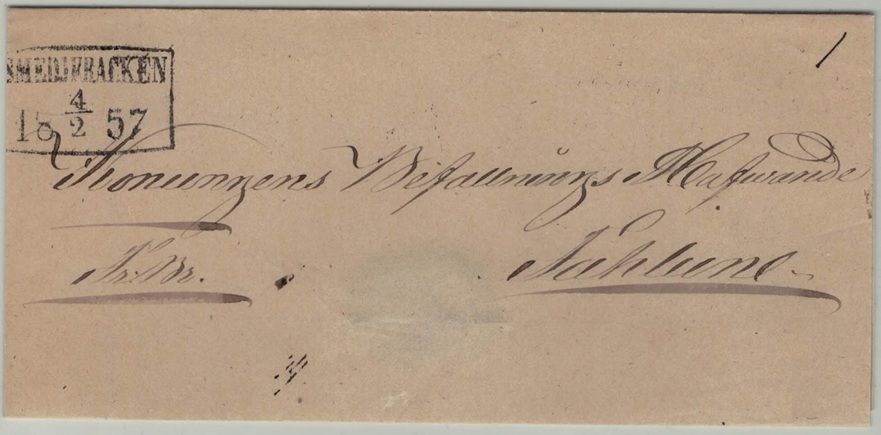 SMEDJEBACKEN
18 4/2 57
1
Konungens Befallnings Hafwande
Fr: Br.
Fahlune